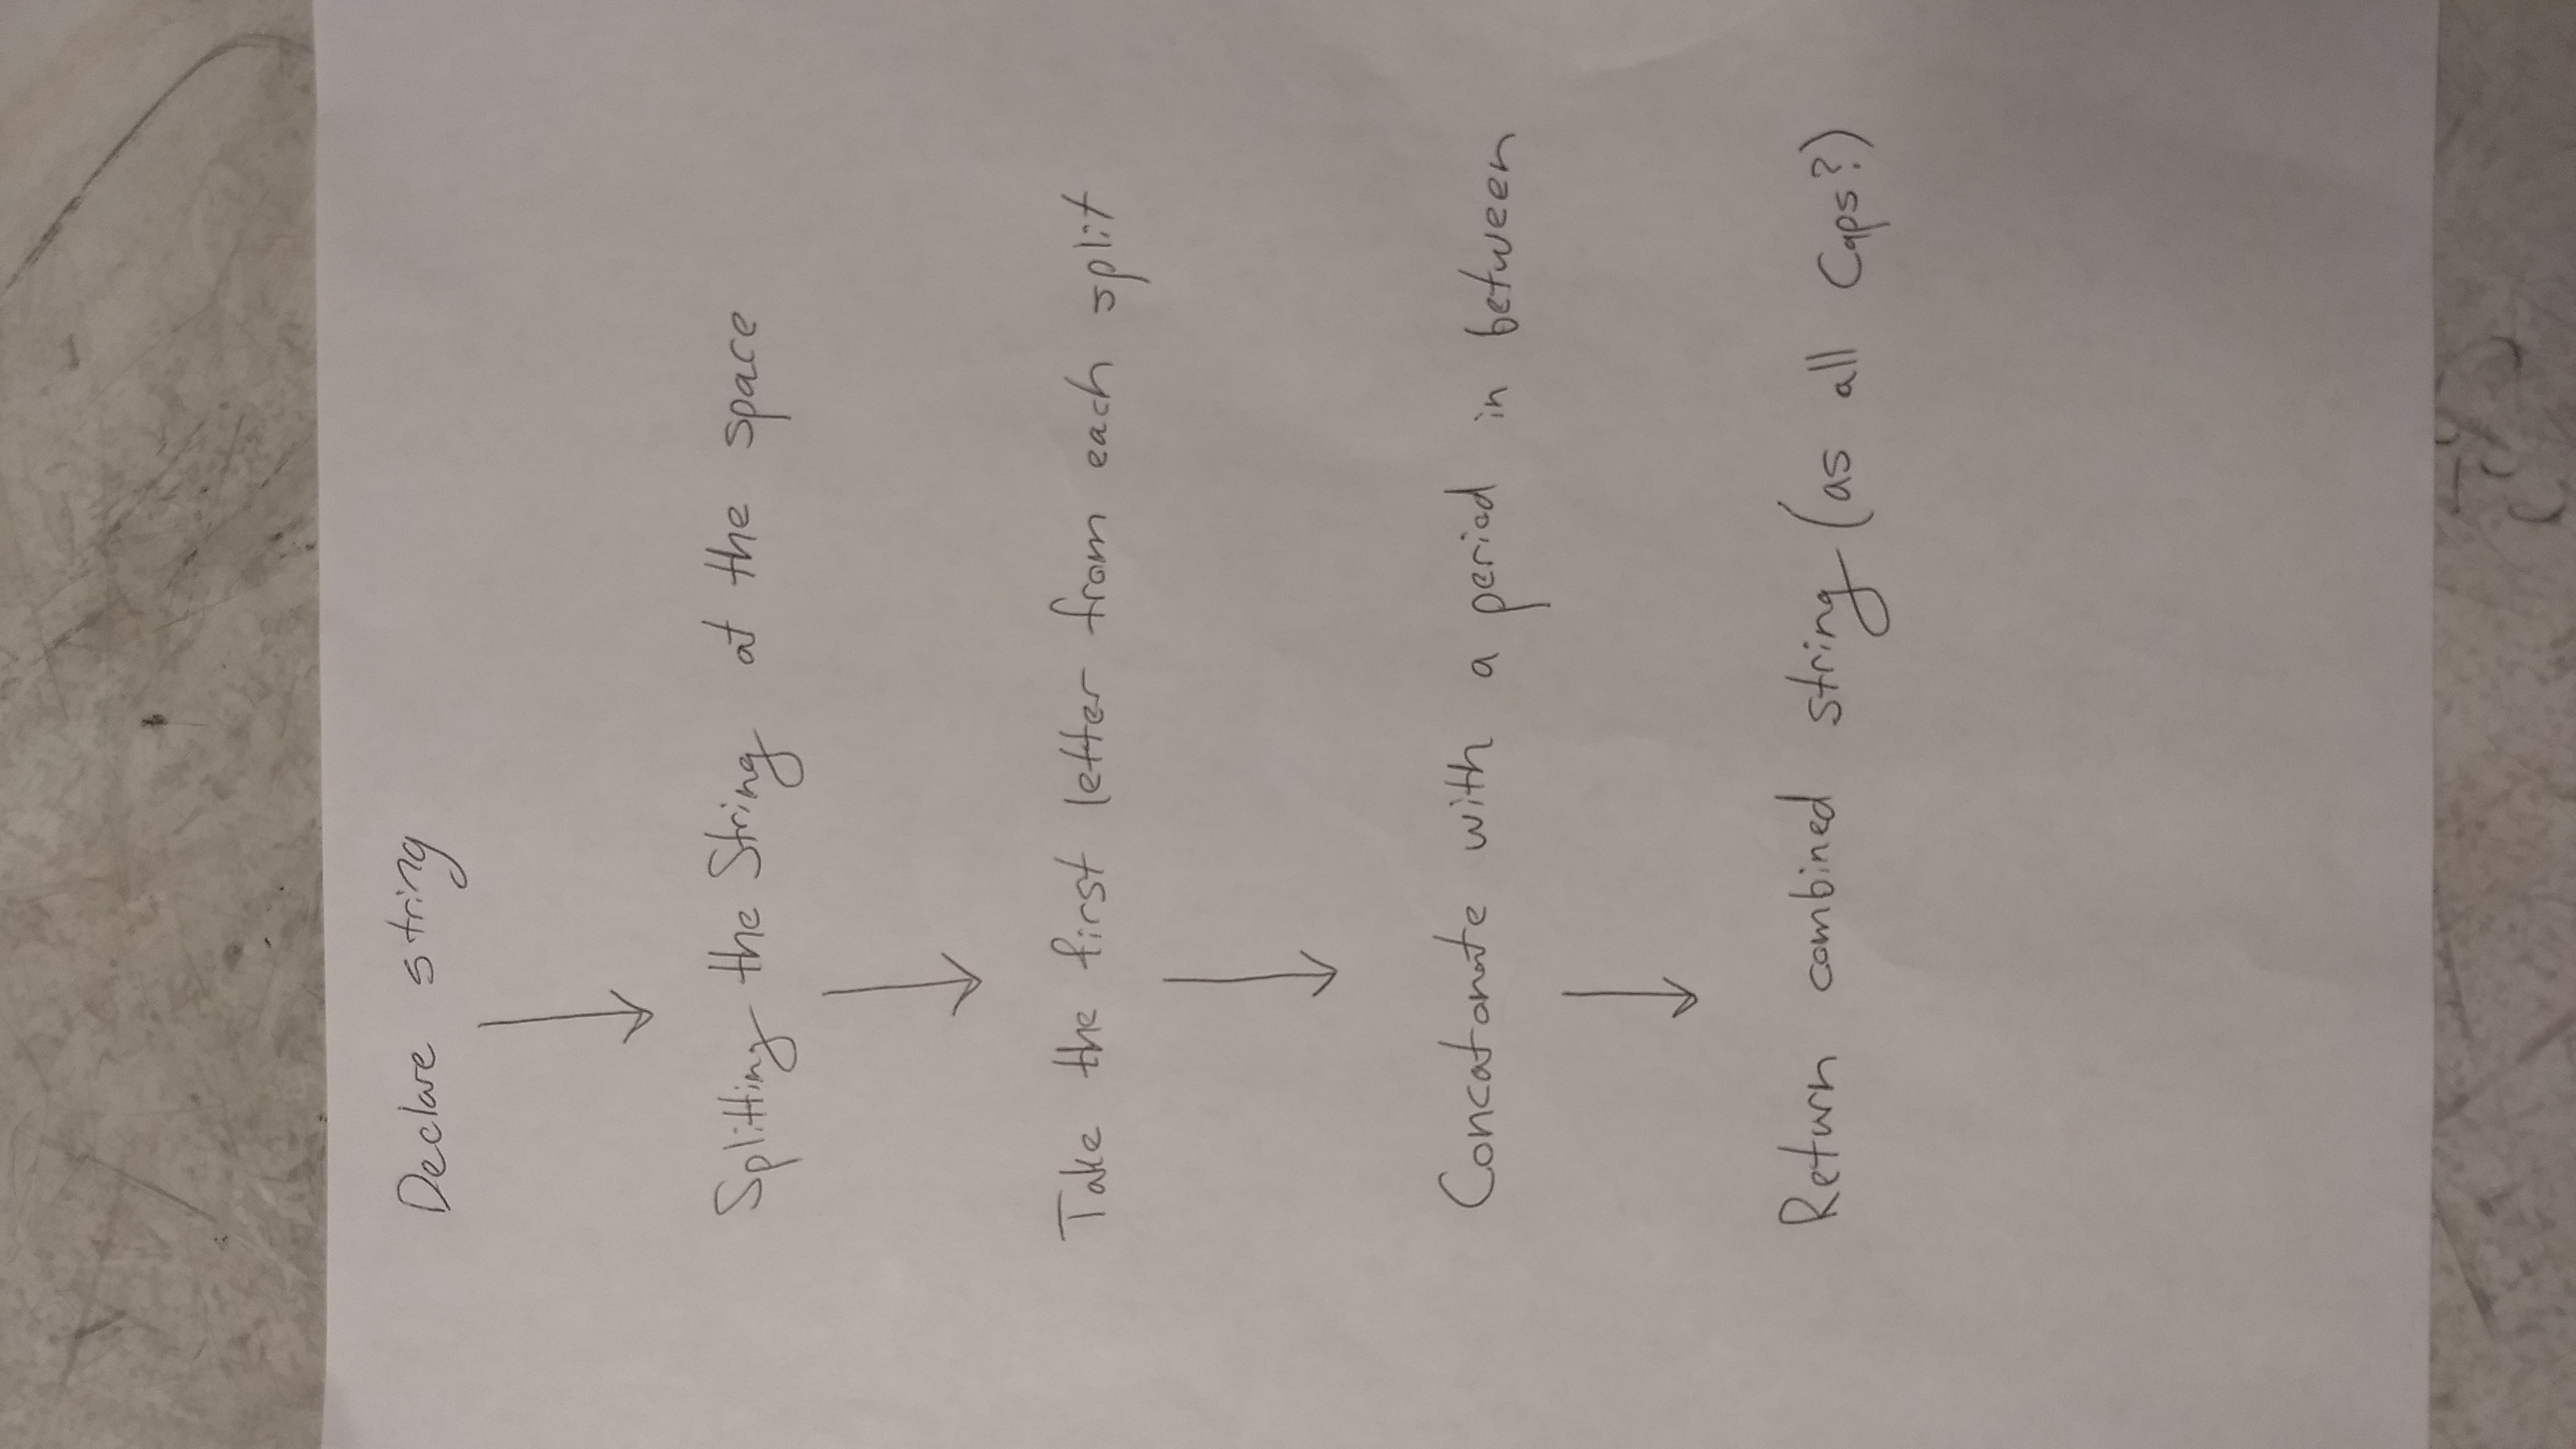 Declare string
Splitting the String at the space
Take the first letter from each split
Concatanate with a period in between
Return combined string (as all Caps?)